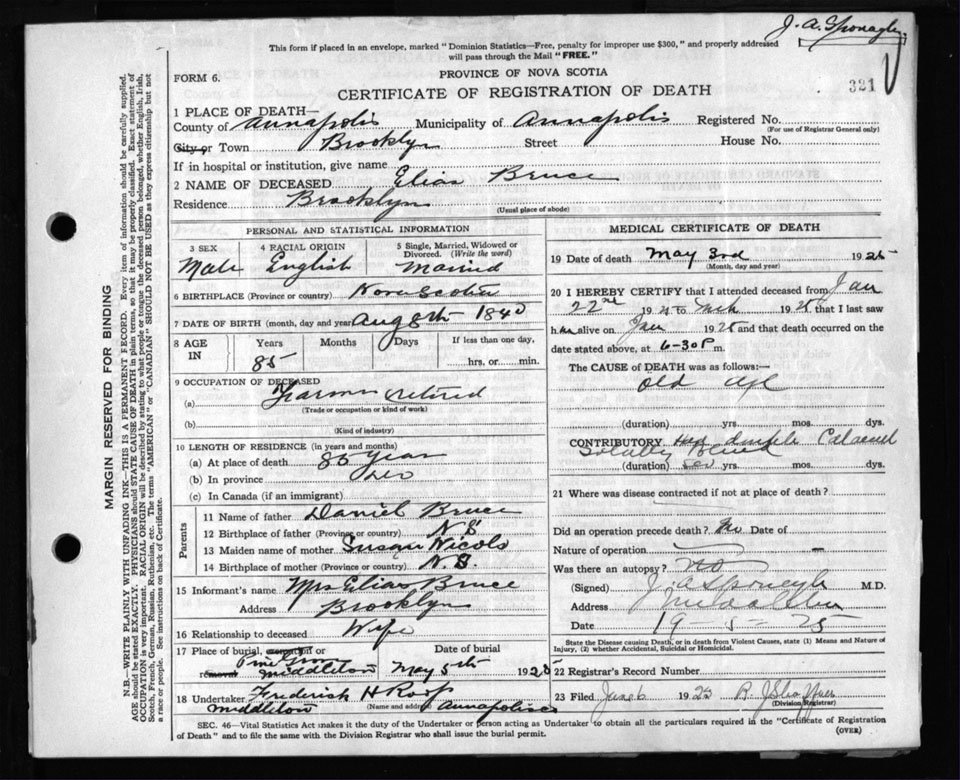 J. A. Sponagle
This form if placed in an envelope, marked "Dominion Statistics—Free, penalty for improper use $300," and properly addressed
will pass through the Mail "FREE."
FORM 6.
PROVINCE OF NOVA SCOTIA
CERTIFICATE OF REGISTRATION OF DEATH
321
1 PLACE OF DEATH—
County of Annapolis Municipality of Annapolis Registered No.
(For use of Registrar General only)
City or Town Brooklyn Street House No.
If in hospital or institution, give name
2 NAME OF DECEASED Elias Bruce
Residence Brooklyn
(Usual place of abode)
PERSONAL AND STATISTICAL INFORMATION
3 SEX
Male
4 RACIAL ORIGIN
English
5 Single, Married, Widowed or
Divorced. (Write the word)
Married
6 BIRTHPLACE (Province or country) Nova Scotia
7 DATE OF BIRTH (month, day and year) Aug 8th 1840
8 AGE
IN
Years
85
Months
Days
If less than one day,
hrs. or min.
9 OCCUPATION OF DECEASED
(a) Farmer retired
(Trade or occupation or kind of work)
(b)
(Kind of industry)
10 LENGTH OF RESIDENCE (in years and months)
(a) At place of death 85 Years
(b) In province
(c) In Canada (if an immigrant)
Parents
11 Name of father Daniel Bruce
12 Birthplace of father (Province or country) N S
13 Maiden name of mother Susan Nicols
14 Birthplace of mother (Province or country) N. S.
15 Informant's name Mrs Elias Bruce
Address Brooklyn
16 Relationship to deceased Wife
17 Place of burial, cremation or
removal Pine Grove Middleton
Date of burial
May 5th 1925
18 Undertaker Frederick H Roop
(Name and address)
Middleton Annapolis Co
MEDICAL CERTIFICATE OF DEATH
19 Date of death May 3rd 1925
(Month, day and year)
20 I HEREBY CERTIFY that I attended deceased from Jan
22nd 1925 to 1925 that I last saw
h alive on Jan 1925 and that death occurred on
date stated above, at 6-30 P m.
The CAUSE of DEATH was as follows:—
Old Age
(duration) yrs. mos. dys.
CONTRIBUTORY Had double Cataract
Totally Blind
(duration) yrs. mos. dys.
21 Where was disease contracted if not at place of death?
Did an operation precede death? No Date of
Nature of operation
Was there an autopsy? no
(Signed) J. A Sponagle M.D.
Address Middleton
Date 19-5-25
State the Disease causing Death, or in death from Violent Causes, state (1) Means and Nature of
Injury, (2) whether Accidental, Suicidal or Homicidal.
22 Registrar's Record Number
23 Filed June 6 1925
(Division Registrar)
SEC. 46—Vital Statistics Act makes it the duty of the Undertaker or person acting as Undertaker to obtain all the particulars required in the "Certificate of Registration
of Death" and to file the same with the Division Registrar who shall issue the burial permit.
(OVER)
MARGIN RESERVED FOR BINDING
N.B.—WRITE PLAINLY WITH UNFADING INK—THIS IS A PERMANENT RECORD. Every item of information should be carefully supplied.
AGE should be stated EXACTLY. PHYSICIANS should STATE CAUSE OF DEATH in plain terms, so that it may be properly classified. Exact statement of
OCCUPATION is very important. RACIAL ORIGIN will be described by stating to what people or tongue the deceased person belonged, whether English, Irish,
Scotch, French, German, Russian, Ruthenian, etc. The terms "AMERICAN" or "CANADIAN" SHOULD NOT BE USED as they express citizenship but not
a race or people. See instructions on back of Certificate.